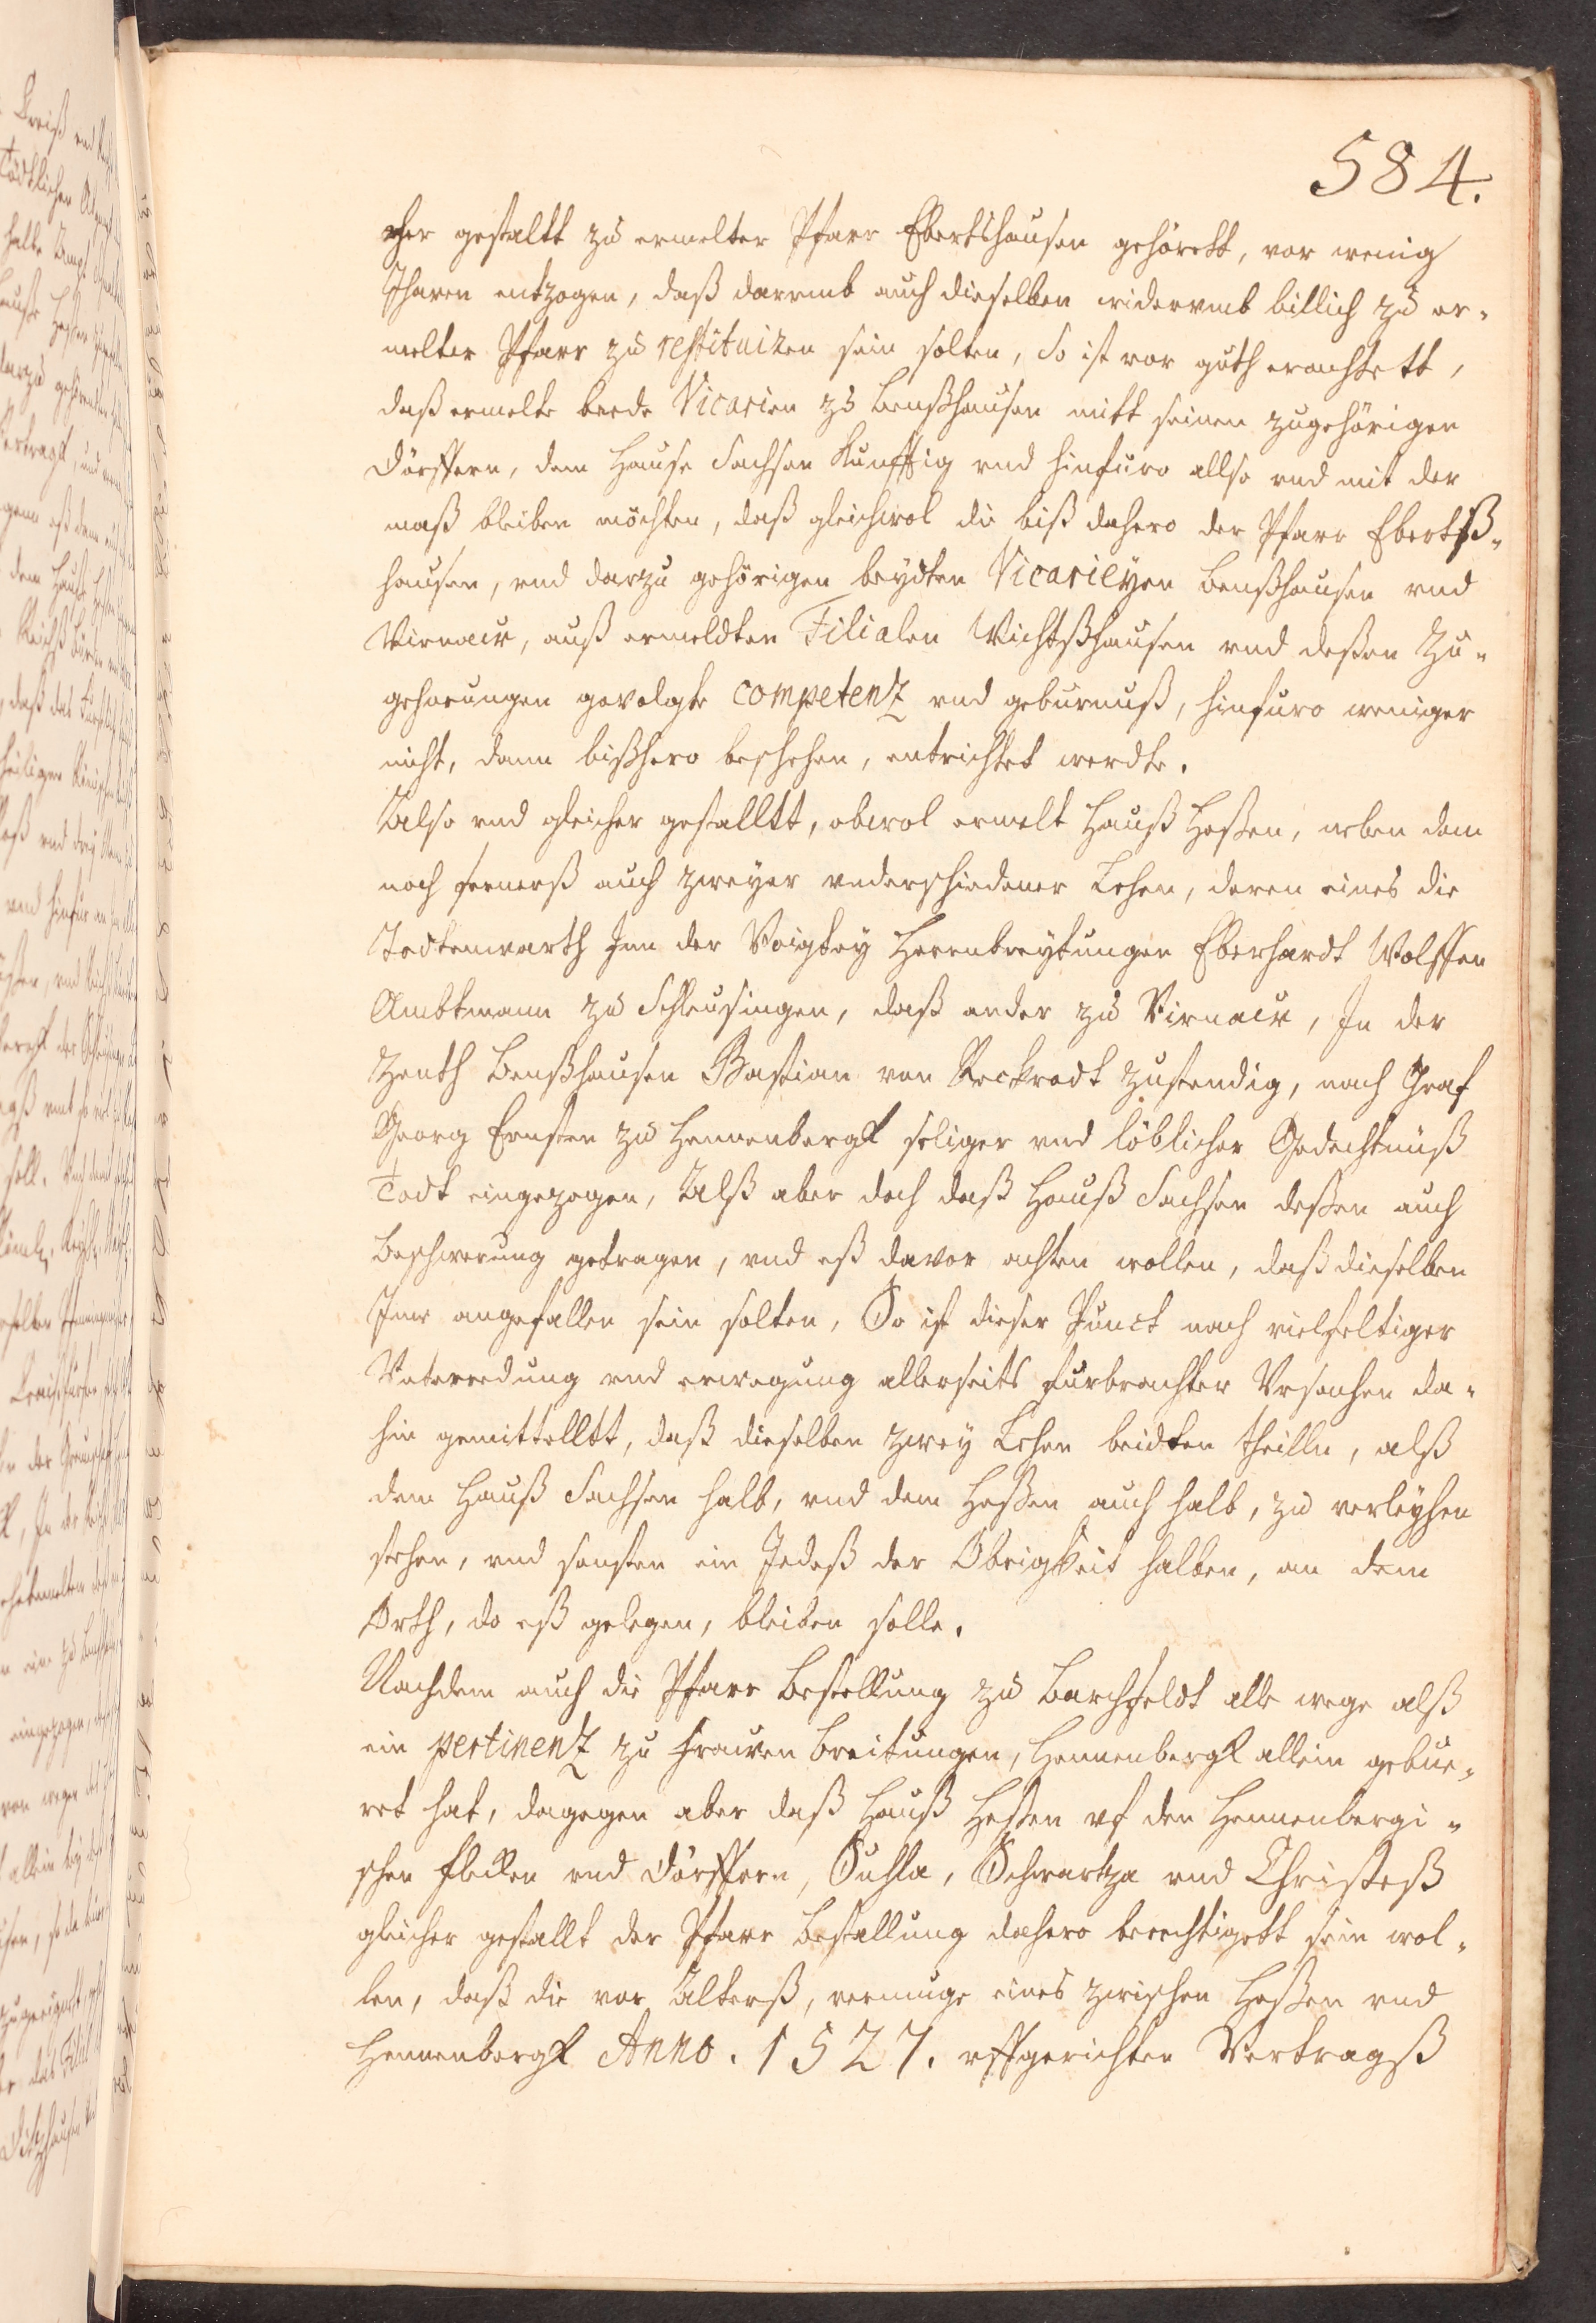 584.
cher gestaltt zu ermelter Pfarr Ebertshausen gehörett, vor wenig
Jharen entzogen, daß darumb auch dieselben widerumb billich zu er„
melter Pfarr zu restituiren sein solten, So ist vor guth erachtett,
daß ermelte beede Vicarien zu Benßhausen mitt seinen zugehörigen
Dörffern, dem Hause Sachsen Kunfftig vnd hinfuro allso vnd mit der
maß bleiben möchten, daß gleichwol die biß dahero der Pfarr Ebertß„
hausen, vnd darzu gehörigen beydten Vicarieyen Benßhausen vnd
Virnaw, auß ermeldten Filialen Wichtßhausen vnd deßen Zu„
gehorungen gevolgte competentz vnd geburnuß, hinfuro weniger
nicht, dann bißhero beschehen, entrichtet werdte.
Also vnd gleicher gestalltt, obwol ermelt Hauß Heßen, neben dem
noch fernerß auch zweyer vnderschiedener Lehen, deren eines die
Todtenwarth Inn der Voigtey Herrenbreytungen Eberhardt Wolffen
Ambtmann zu Schleusingen, daß ander zu Virnaw, In der
Zenth Benßhausen Bastian von Reckrodt zustendig, nach Graf
Georg Ernsten zu Hennenbergk seliger vnd löblicher Gedechtnuß
Todt eingezogen, Alß aber doch daß Hauß Sachsen deßen auch
Beschwerung getragen, vnd eß davor achten wollen, daß dieselben
Ime angefallen sein solten, So ist dieser Punct nach vielfeltiger
Vnterredung vnd erwegung allerseits furbrachter Vrsachen da„
hin gemittelltt, daß dieselben zwey Lehen beidten theilln, alß
dem Hauß Sachsen halb, vnd dem Heßen auch halb, zu verleyhen
stehen, vnd sonsten ein Jedeß der Obrigkeit halben, an dem
Orth, do eß gelegen, bleiben solle.
Nachdem auch die Pfarr Bestellung zu Barchfeldt alle wege alß
ein pertinentz zu Frauen Breitungen, Hennenbergk allein gebue„
ret hat, dagegen aber daß Hauß Heßen vf den Hennenbergi„
schen Flecken vnd Dörffern, Suhla, Schwartza vnd Christeß
gleicher gestallt der Pfarr Bestallung dahero berechtigett sein wol„
len, daß die vor Alterß, vermuge eines zwischen Heßen vnd
Hennenbergk Anno. 1527. vffgerichten Vertragß